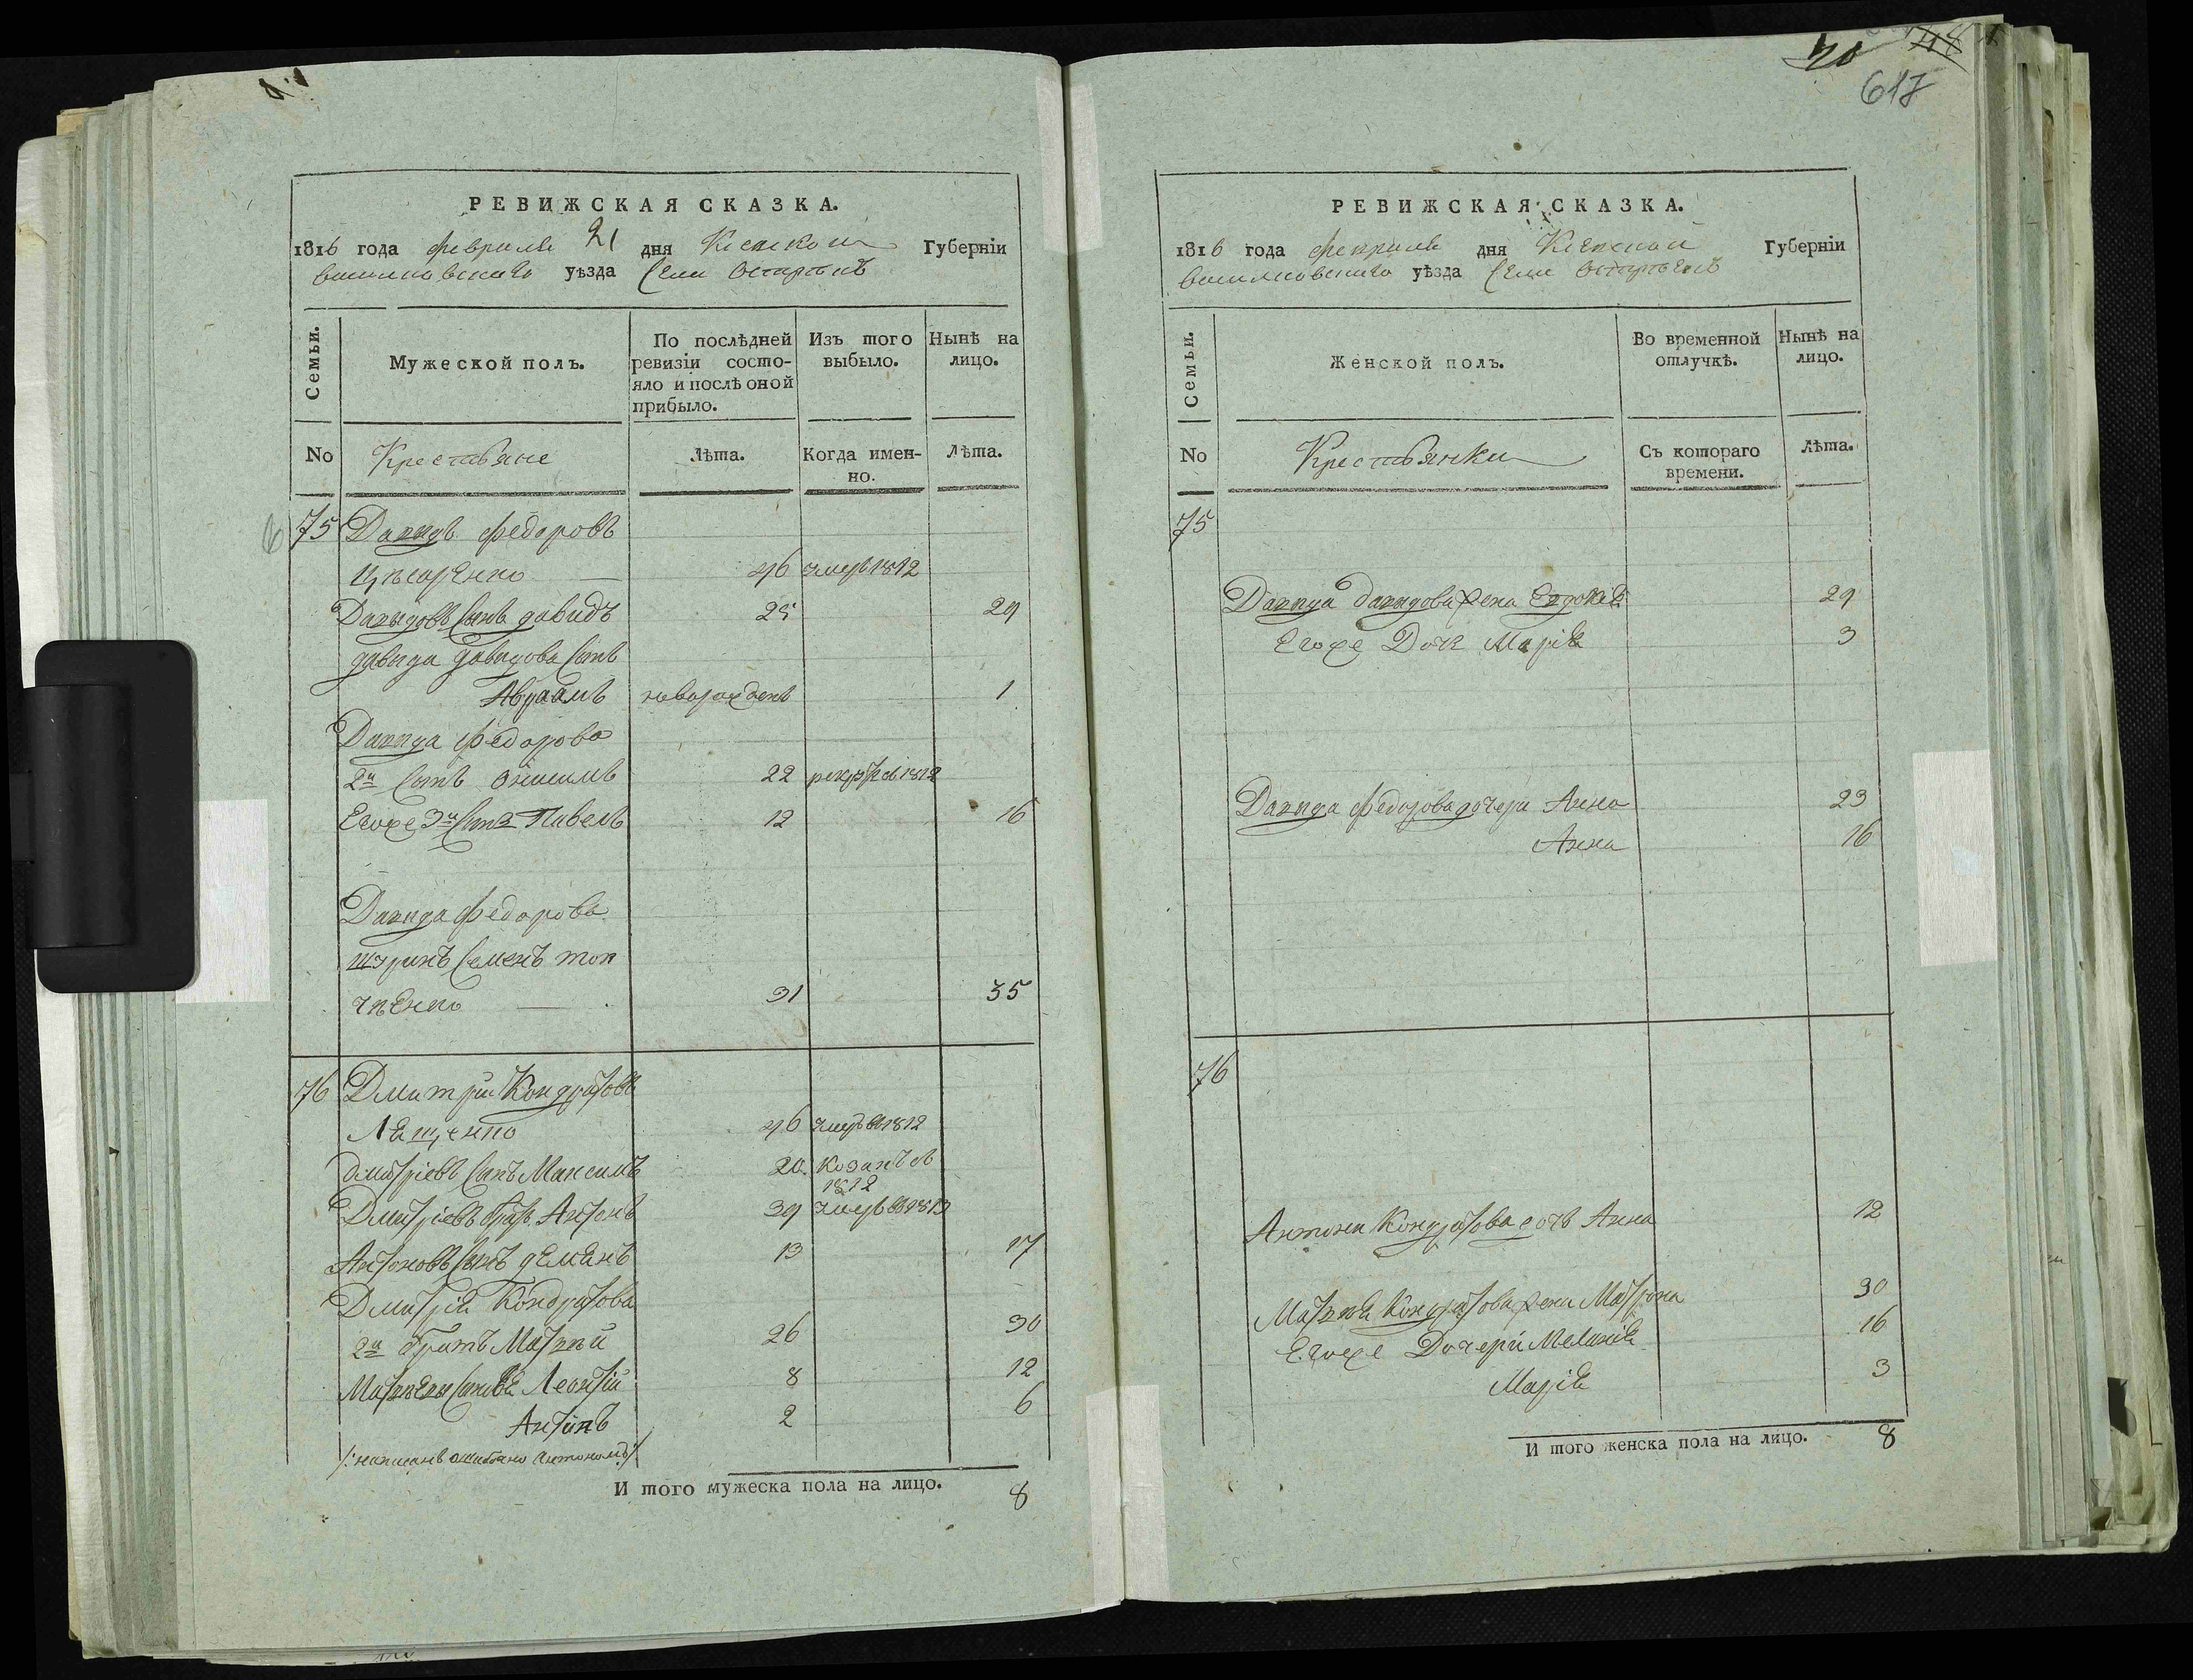 20
617
РЕВИЖСКАЯ СКАЗКА.
1816 года февраля 21 дня Киевской Губернiи
васильковскаго уѣзда Села
Семьи.
Мужеской полъ.
По послѣдней ревизiи состояло и послѣ оной прибыло.
Изъ того выбыло.
Нынѣ на лицо.
No
Крестьяне
Лѣта.
Когда именно.
Лѣта.
75 Давидъ Федоровъ
Цѣсаренко 46 умеръ 1812
Давидовъ сынъ давидъ 25 29
давида давидова сынъ
Авраамъ новорожденъ 1
Давида Федорова
2й сынъ Онисимъ 22 рекрутъ в 1812
Егоже 3й сынъ Павелъ 12 16
Давида Федорова
шуринъ Семенъ
31 35
76 Дмитрий Кондратовъ
Лященко 46 умеръ в 1812
дмитрiевъ сынъ Максимъ 20 козакъ в
1812
Дмитрiевъ братъ Антонъ 39 умеръ в 1813
Антоновъ сынъ демянъ 13 17
Дмитрiя Кондратова
2й братъ Матвѣй 26 30
Матвѣевы сыновья Леонтiй 8 12
Антипъ 2 6
/: написанъ ошибочно Антономъ :/
И того мужеска пола на лицо. 8
РЕВИЖСКАЯ СКАЗКА.
1816 года февраля дня Киевской Губернiи
васильковскаго уѣзда Села
Семьи.
Женской полъ.
Во временной отлучкѣ.
Нынѣ на лицо.
No
Крестьянки
Съ котораго времени.
Лѣта.
75
Давида давидова жена Евдокiя 29
Егоже Дочь Марiя 3
Давида Федорова дочери Анна 23
Анна 16
76
Антона Кондратова дочь Анна 12
Матвѣя Кондратова жена Матрона 30
Егоже Дочери Меланiя 16
Марiя 3
И того женска пола на лицо. 8